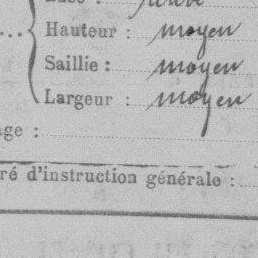 Hauteur : moyen
Saillie : moyen
Largeur : moyen
age :
ré d'instruction générale :